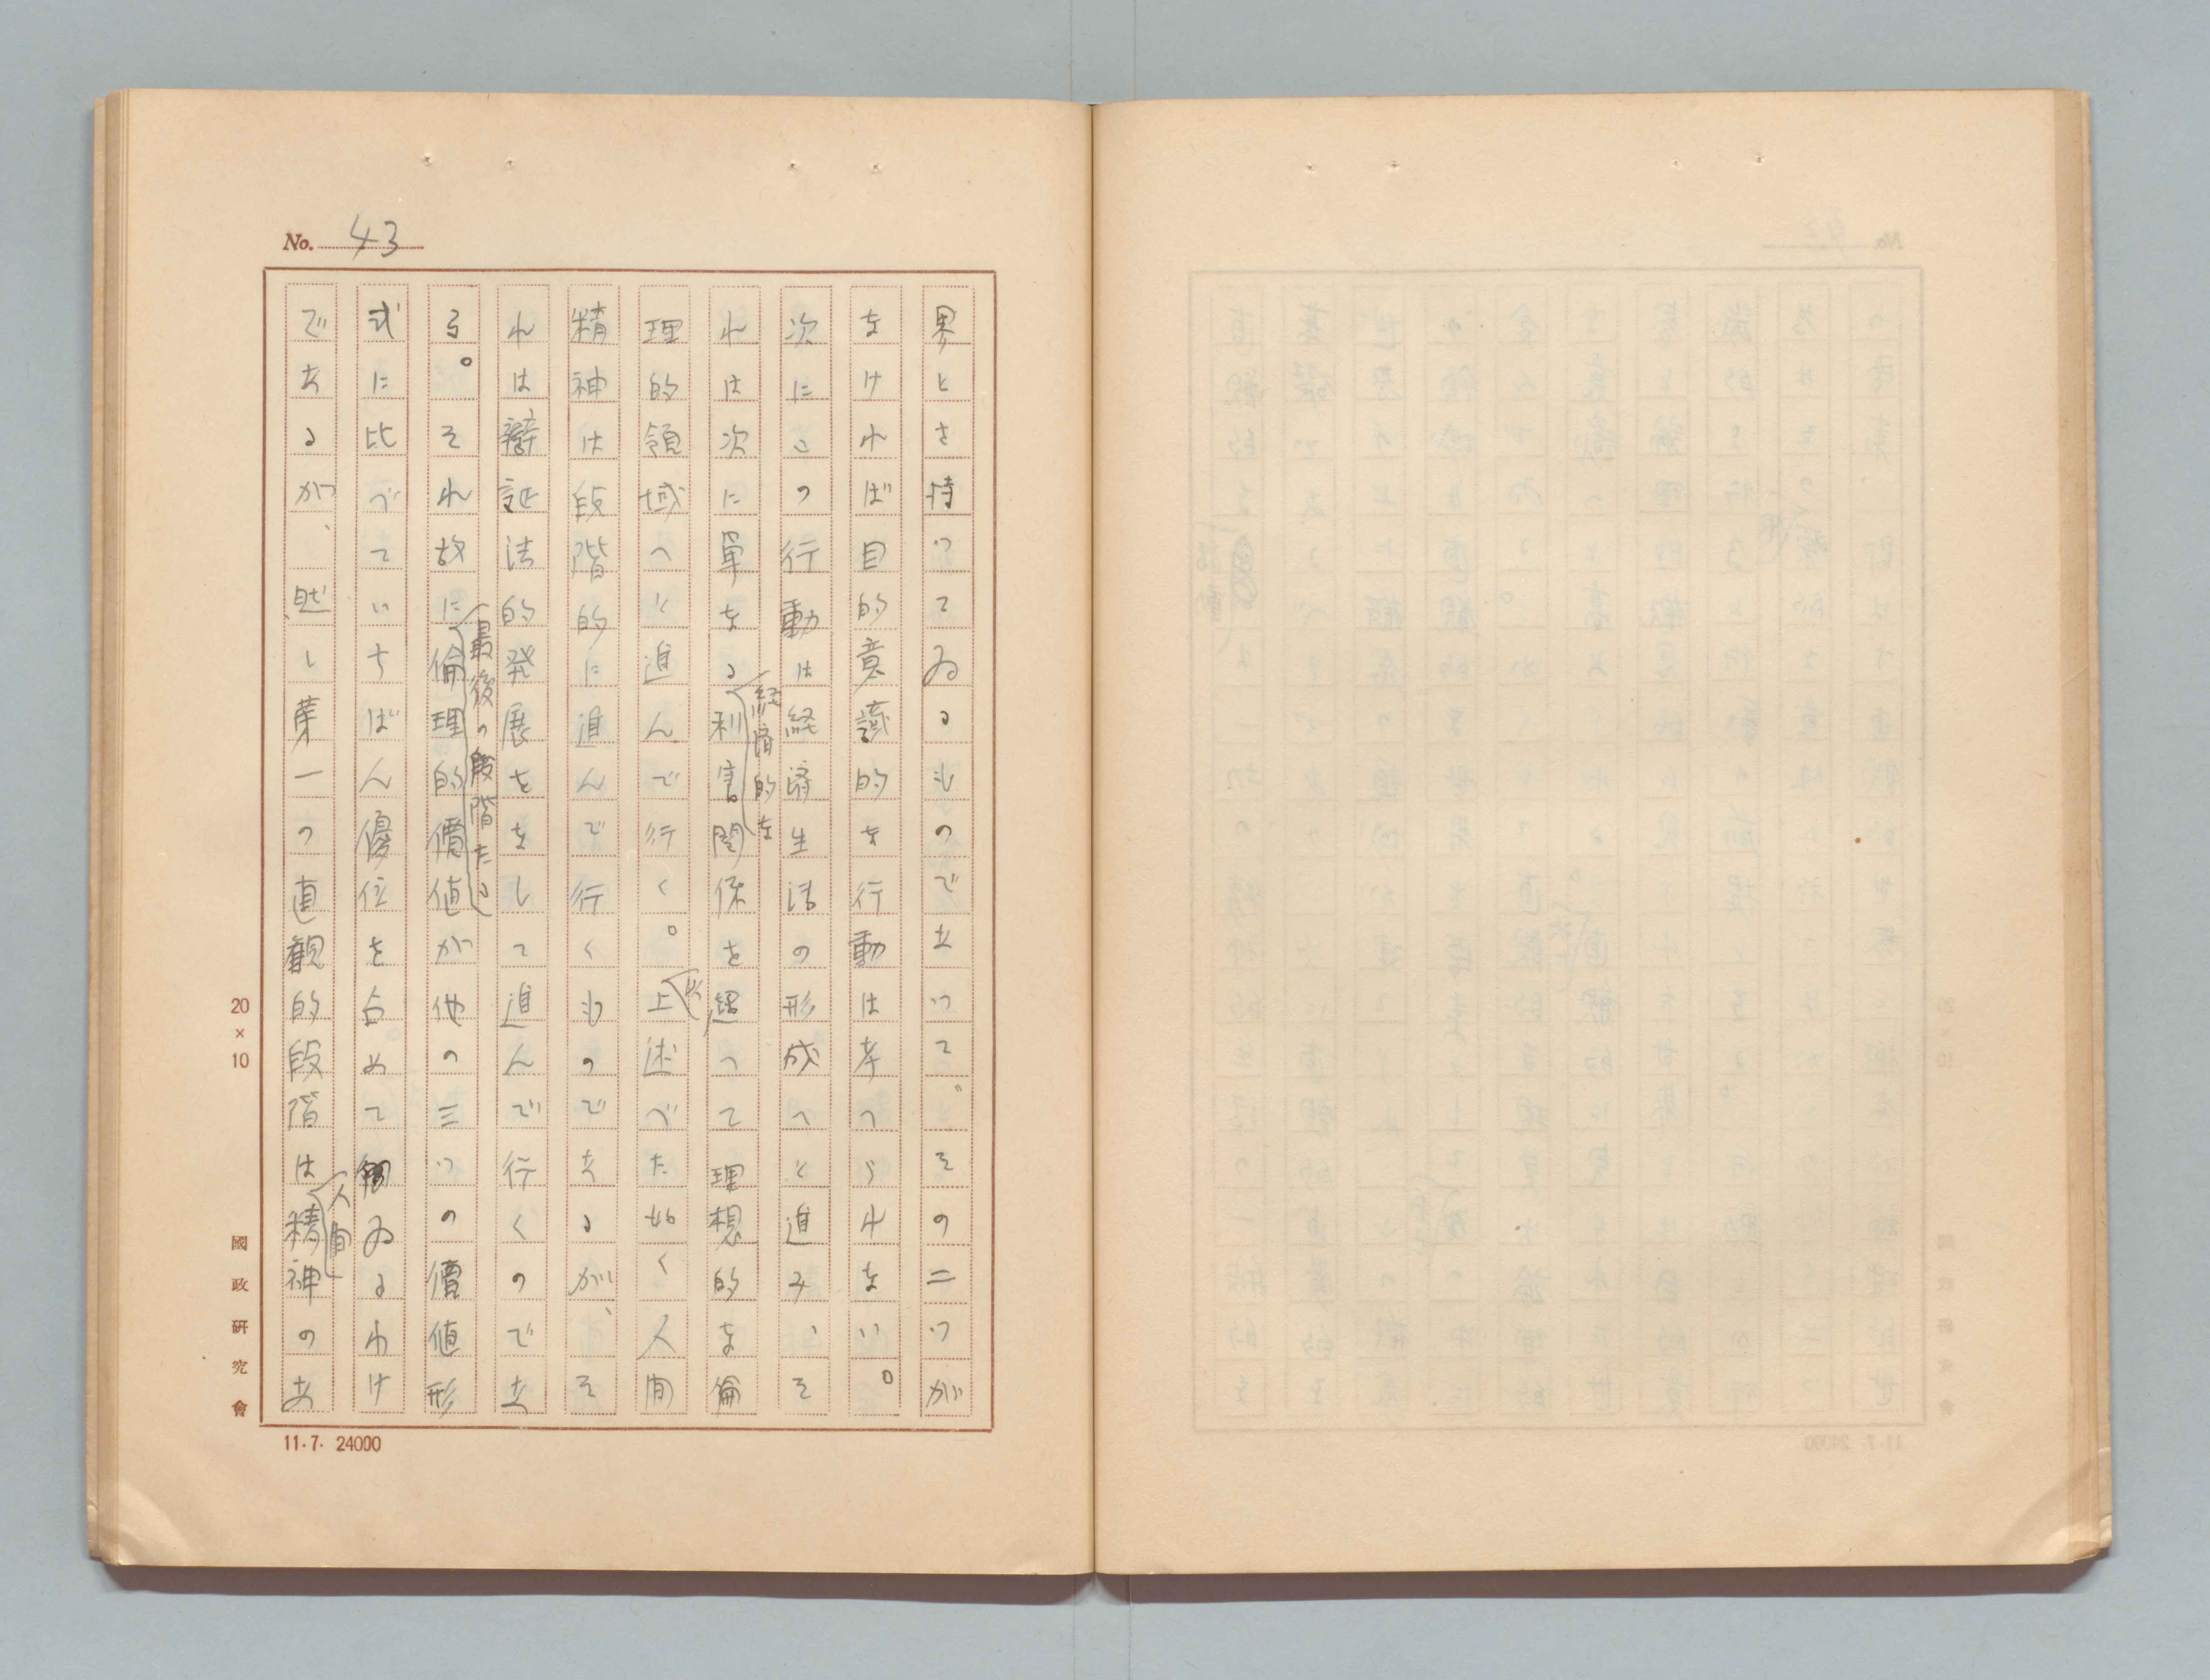 No. 43
界とを持つてゐるものであつて、その二つが
なければ目的意識的な行動は考へられない。
次にこの行動は経済生活の形成へと進み、そ
れは次に単なる経済的な利害関係を超つて理想的な倫
理的領域へと進んで行く。以上述べた如く人間
精神は段階的に進んで行くものであるが、そ
れは辯証法的発展をなして進んで行くのであ
る。それ故に最後の段階たる倫理的價値が他の三つの價値形
式に比べていちばん優位を占めてゐるわけ
であるが、然し第一の直観的段階は人間精神のあ
20×10
國政研究會
11.7. 24000